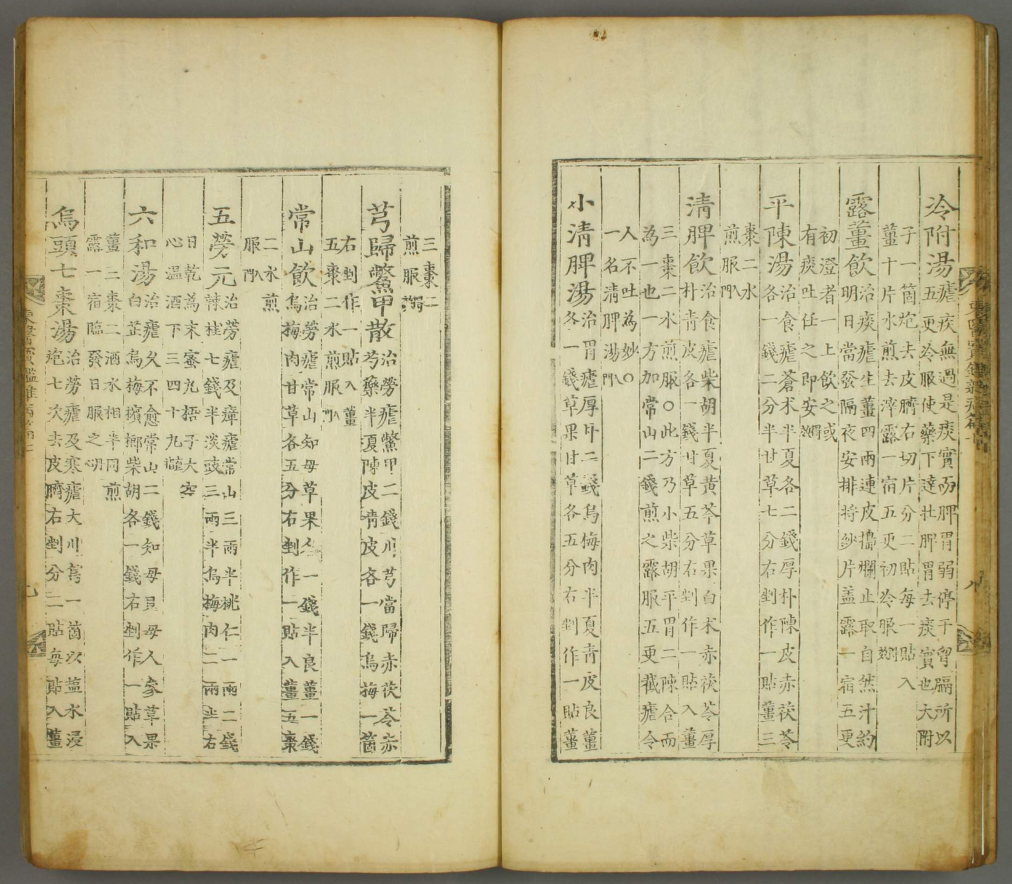 冷附湯
瘧疾無過是痰實而脾胃弱停于胷膈所以
五更冷服使藥下達壯脾胃去痰實也大附
子一箇炮去皮臍右切片分二貼每一貼入
薑十片水煎去滓露一宿五更初冷服
露薑飲
治痰瘧生薑四兩連皮擣爛止取自然汁約
明日當發隔夜安排將紗片盖露一宿五更
初澄者一上飲之或
有痰任之即安
平陳湯
治食瘧蒼朮半夏各二錢厚朴陳皮赤茯苓
各一錢二分半甘草七分右剉作一貼薑三
棗二水
煎服入門
清脾飲
治食瘧柴胡半夏黃芩草果白朮赤茯苓厚
朴靑皮各一錢甘草五分右剉作一貼入薑
三棗二水煎服○此方乃小柴胡平胃二陳合而
為一也一方加常山二錢煎之露服五更截瘧令
人不吐為妙○
一名清脾湯入門
小清脾湯
治胃瘧厚朴二錢烏梅肉半夏靑皮良薑
各一錢草果甘草各五分右剉作一貼薑
東醫寶鑑雜病篇
三棗二
煎服
芎歸鱉甲散
治勞瘧鱉甲二錢川芎當歸赤茯苓赤
芍藥半夏陳皮靑皮各一錢烏梅一箇
右剉作一貼入薑
五棗二水煎服入門
常山飲
治勞瘧常山知母草果各一錢半良薑一錢
烏梅肉甘草各五分右剉作一貼入薑五棗
二水煎
服入門
五勞元
治勞瘧及瘴瘧常山三兩半桃仁一兩二錢
辣桂七錢半淡豉三兩半烏梅肉二兩半右
日乾為末蜜丸梧子大空
心溫酒下三四十丸
六和湯
治瘧久不愈常山二錢知母貝母人參草果
白芷烏梅檳榔柴胡各一錢右剉作一貼入
薑三棗二酒水相半同煎
露一宿臨發日服之
烏頭七棗湯
治勞瘧及寒瘧大川烏一箇以鹽水浸
炮七次去皮臍右剉分二貼每貼入薑